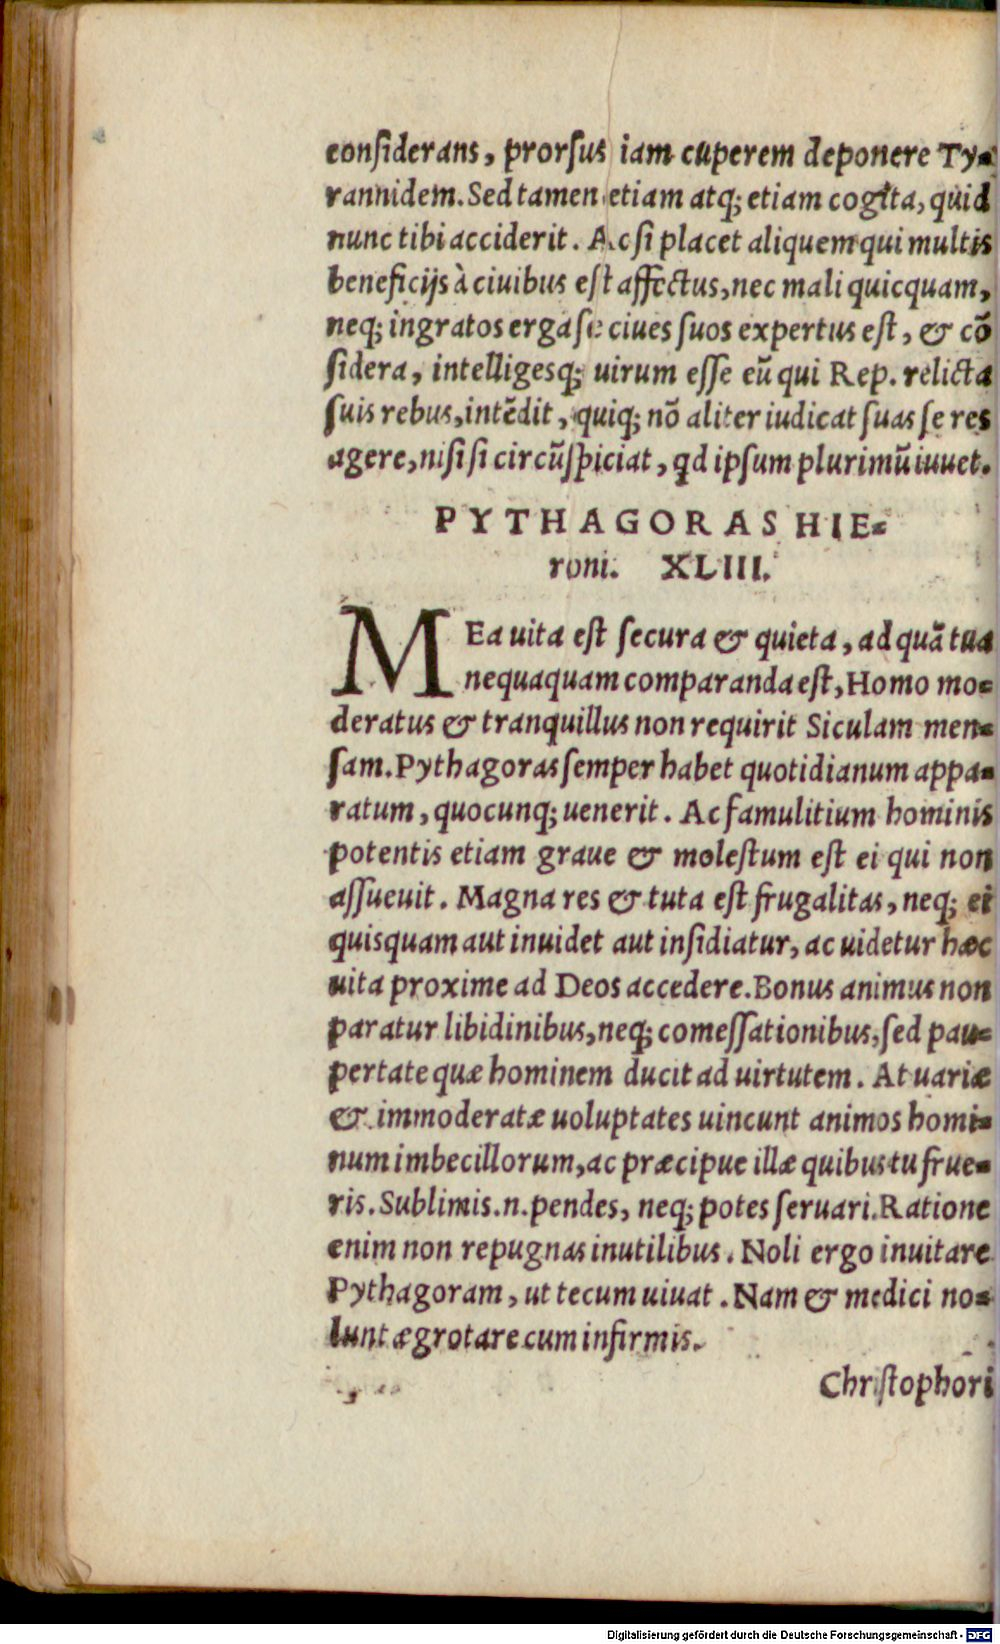 considerans, prorsus iam cuperem deponere Ty-
rannidem. Sed tamen etiam atq; etiam cogita, quid
nunc tibi acciderit. Ac si placet aliquem qui multis
beneficijs à ciuibus est affectus, nec mali quicquam,
neq; ingratos erga se ciues suos expertus est, & cõ
sidera, intelligesq; uirum esse eũ qui Rep. relicta
suis rebus, intẽdit, quiq; nõ aliter iudicat suas se res
agere, nisi si circũspiciat, qd ipsum plurimũ iuuet.
PYTHAGORAS HIE-
roni. XLIII.
MEa uita est secura & quieta, ad quã tua
nequaquam comparanda est, Homo mo-
deratus & tranquillus non requirit Siculam men-
sam. Pythagoras semper habet quotidianum appa-
ratum, quocunq; uenerit. Ac famulitium hominis
potentis etiam graue & molestum est ei qui non
assueuit. Magna res & tuta est frugalitas, neq; ei
quisquam aut inuidet aut insidiatur, ac uidetur hæc
uita proxime ad Deos accedere. Bonus animus non
paratur libidinibus, neq; comessationibus, sed pau-
pertate quæ hominem ducit ad uirtutem. At uariæ
& immoderatæ uoluptates uincunt animos homi-
num imbecillorum, ac præcipue illæ quibus tu frue-
ris. Sublimis .n. pendes, neq; potes seruari. Ratione
enim non repugnas inutilibus. Noli ergo inuitare
Pythagoram, ut tecum uiuat. Nam & medici no-
lunt ægrotare cum infirmis.
Christophori
Digitalisierung gefördert durch die Deutsche Forschungsgemeinschaft - DFG